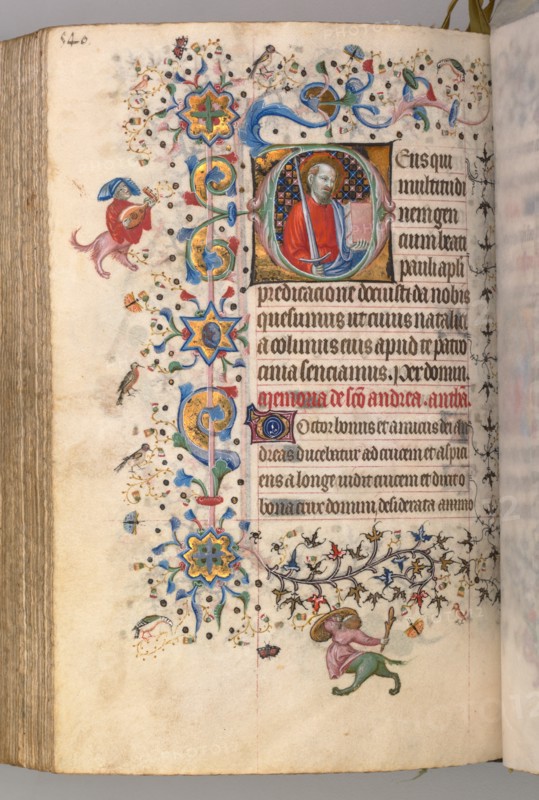 540.
Deus qui
multitudi
nem gen
cium beati
pauli apli
predicacione docuisti da nobis
quesumus ut cuius natalici
a colimus eius apud te patro
cinia senciamus. Per domin.
Memoria de sco andrea. antha.
Doctor bonus et amicus dei an
dreas ducebatur ad crucem et aspici
ens a longe vidit crucem et dixit o
bona crux domini, desiderata animo